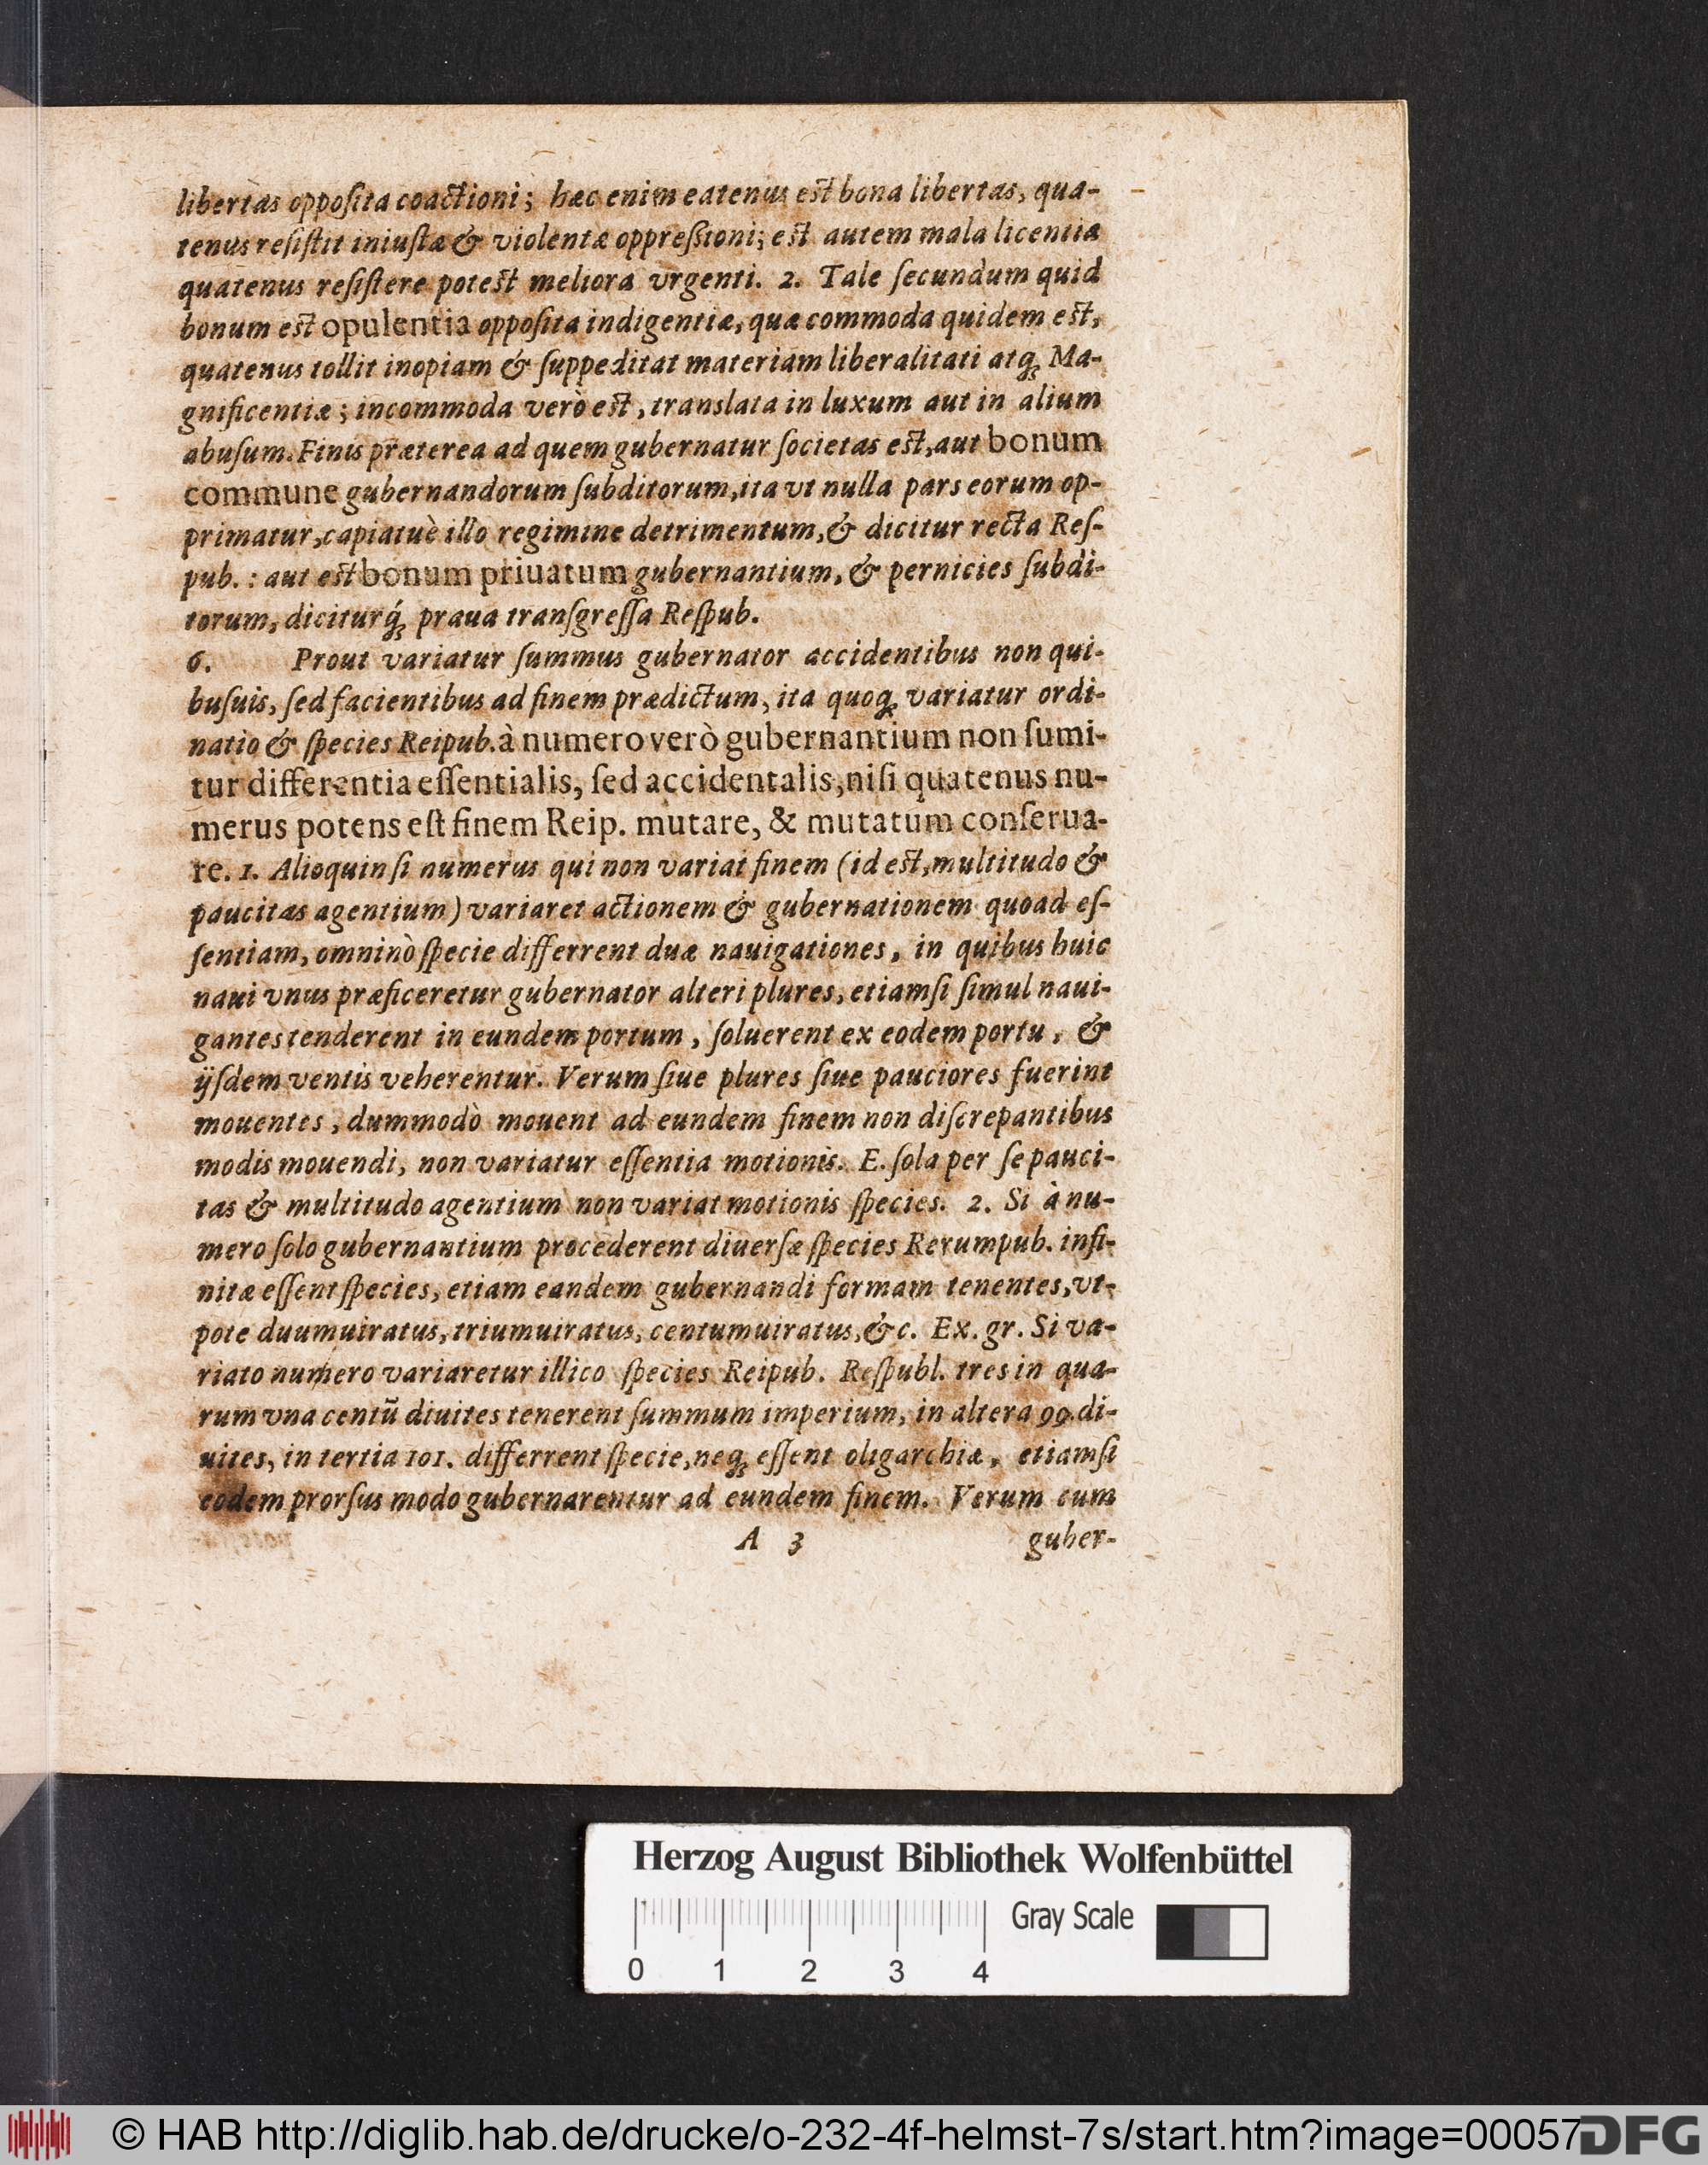 libertas oppoſita coactioni; hæc enim eatenus est bona libertas, qua-
tenus reſiſtit iniuſtæ & violentæ oppreſsioni; est autem mala licentia
quatenus reſiſtere potest meliora vrgenti. 2. Tale ſecundum quid
bonum est opulentia oppoſita indigentiæ, quæ commoda quidem est,
quatenus tollit inopiam & ſuppeditat materiam liberalitati atq; Ma-
gnificentiæ; incommoda verò est, translata in luxum aut in alium
abuſum. Finis præterea ad quem gubernatur ſocietas est, aut bonum
commune gubernandorum ſubditorum, ita vt nulla pars eorum op-
primatur, capiatuè illo regimine detrimentum, & dicitur recta Reſ-
pub. : aut est bonum priuatum gubernantium, & pernicies ſubdi-
torum, diciturq́; praua tranſgreſſa Reſpub.
6. Prout variatur ſummus gubernator accidentibus non qui-
buſuis, ſed facientibus ad finem prædictum, ita quoq; variatur ordi-
natio & ſpecies Reipub. à numero verò gubernantium non ſumi-
tur differentia eſſentialis, ſed accidentalis, niſi quatenus nu-
merus potens eſt finem Reip. mutare, & mutatum conſerua-
re. 1. Alioquin ſi numerus qui non variat finem (id est, multitudo &
paucitas agentium) variaret actionem & gubernationem quoad eſ-
ſentiam, omninò ſpecie differrent duæ nauigationes, in quibus huic
naui vnus præficeretur gubernator alteri plures, etiamſi ſimul naui-
gantes tenderent in eundem portum, ſoluerent ex eodem portu, &
ijſdem ventis veherentur. Verum ſiue plures ſiue pauciores fuerint
mouentes, dummodò mouent ad eundem finem non diſcrepantibus
modis mouendi, non variatur eſſentia motionis. E. ſola per ſe pauci-
tas & multitudo agentium non variat motionis ſpecies. 2. Si à nu-
mero ſolo gubernantium procederent diuerſæ ſpecies Rerumpub. infi-
nitæ eſſent ſpecies, etiam eandem gubernandi formam tenentes, vt-
pote duumuiratus, triumuiratus, centumuiratus, &c. Ex. gr. Si va-
riato numero variaretur illico ſpecies Reipub. Reſpubl. tres in qua-
rum vna centū diuites tenerent ſummum imperium, in altera 99. di-
uites, in tertia 101. differrent ſpecie, neq; eſſent oligarchiæ, etiamſi
eodem prorſus modo gubernarentur ad eundem finem. Verum cum
A 3 guber-
Herzog August Bibliothek Wolfenbüttel
Gray Scale
0 1 2 3 4
© HAB http://diglib.hab.de/drucke/o-232-4f-helmst-7s/start.htm?image=00057
DFG